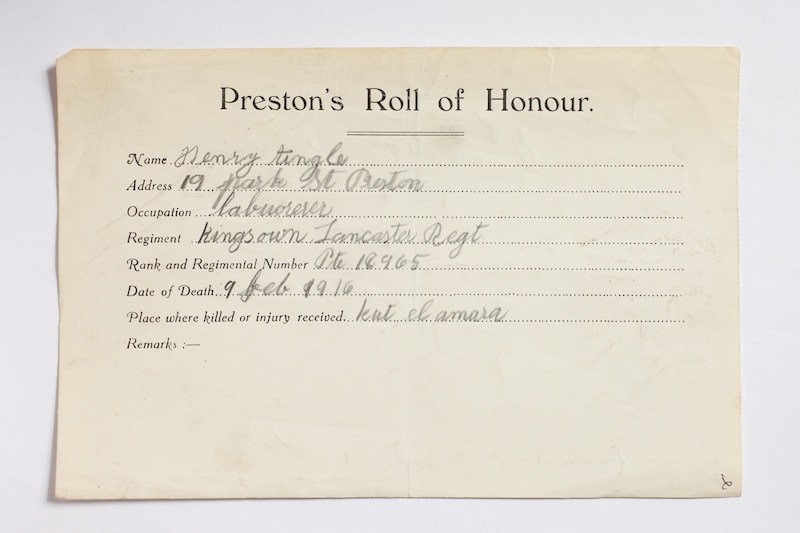 Preston's Roll of Honour.
Name Henry tingle
Address 19 Park St Preston
Occupation labuorerer
Regiment kingsown Lancaster Regt
Rank and Regimental Number Pte 18965
Date of Death 9 feb 1916
Place where killed or injury received. kut el amara
Remarks :—